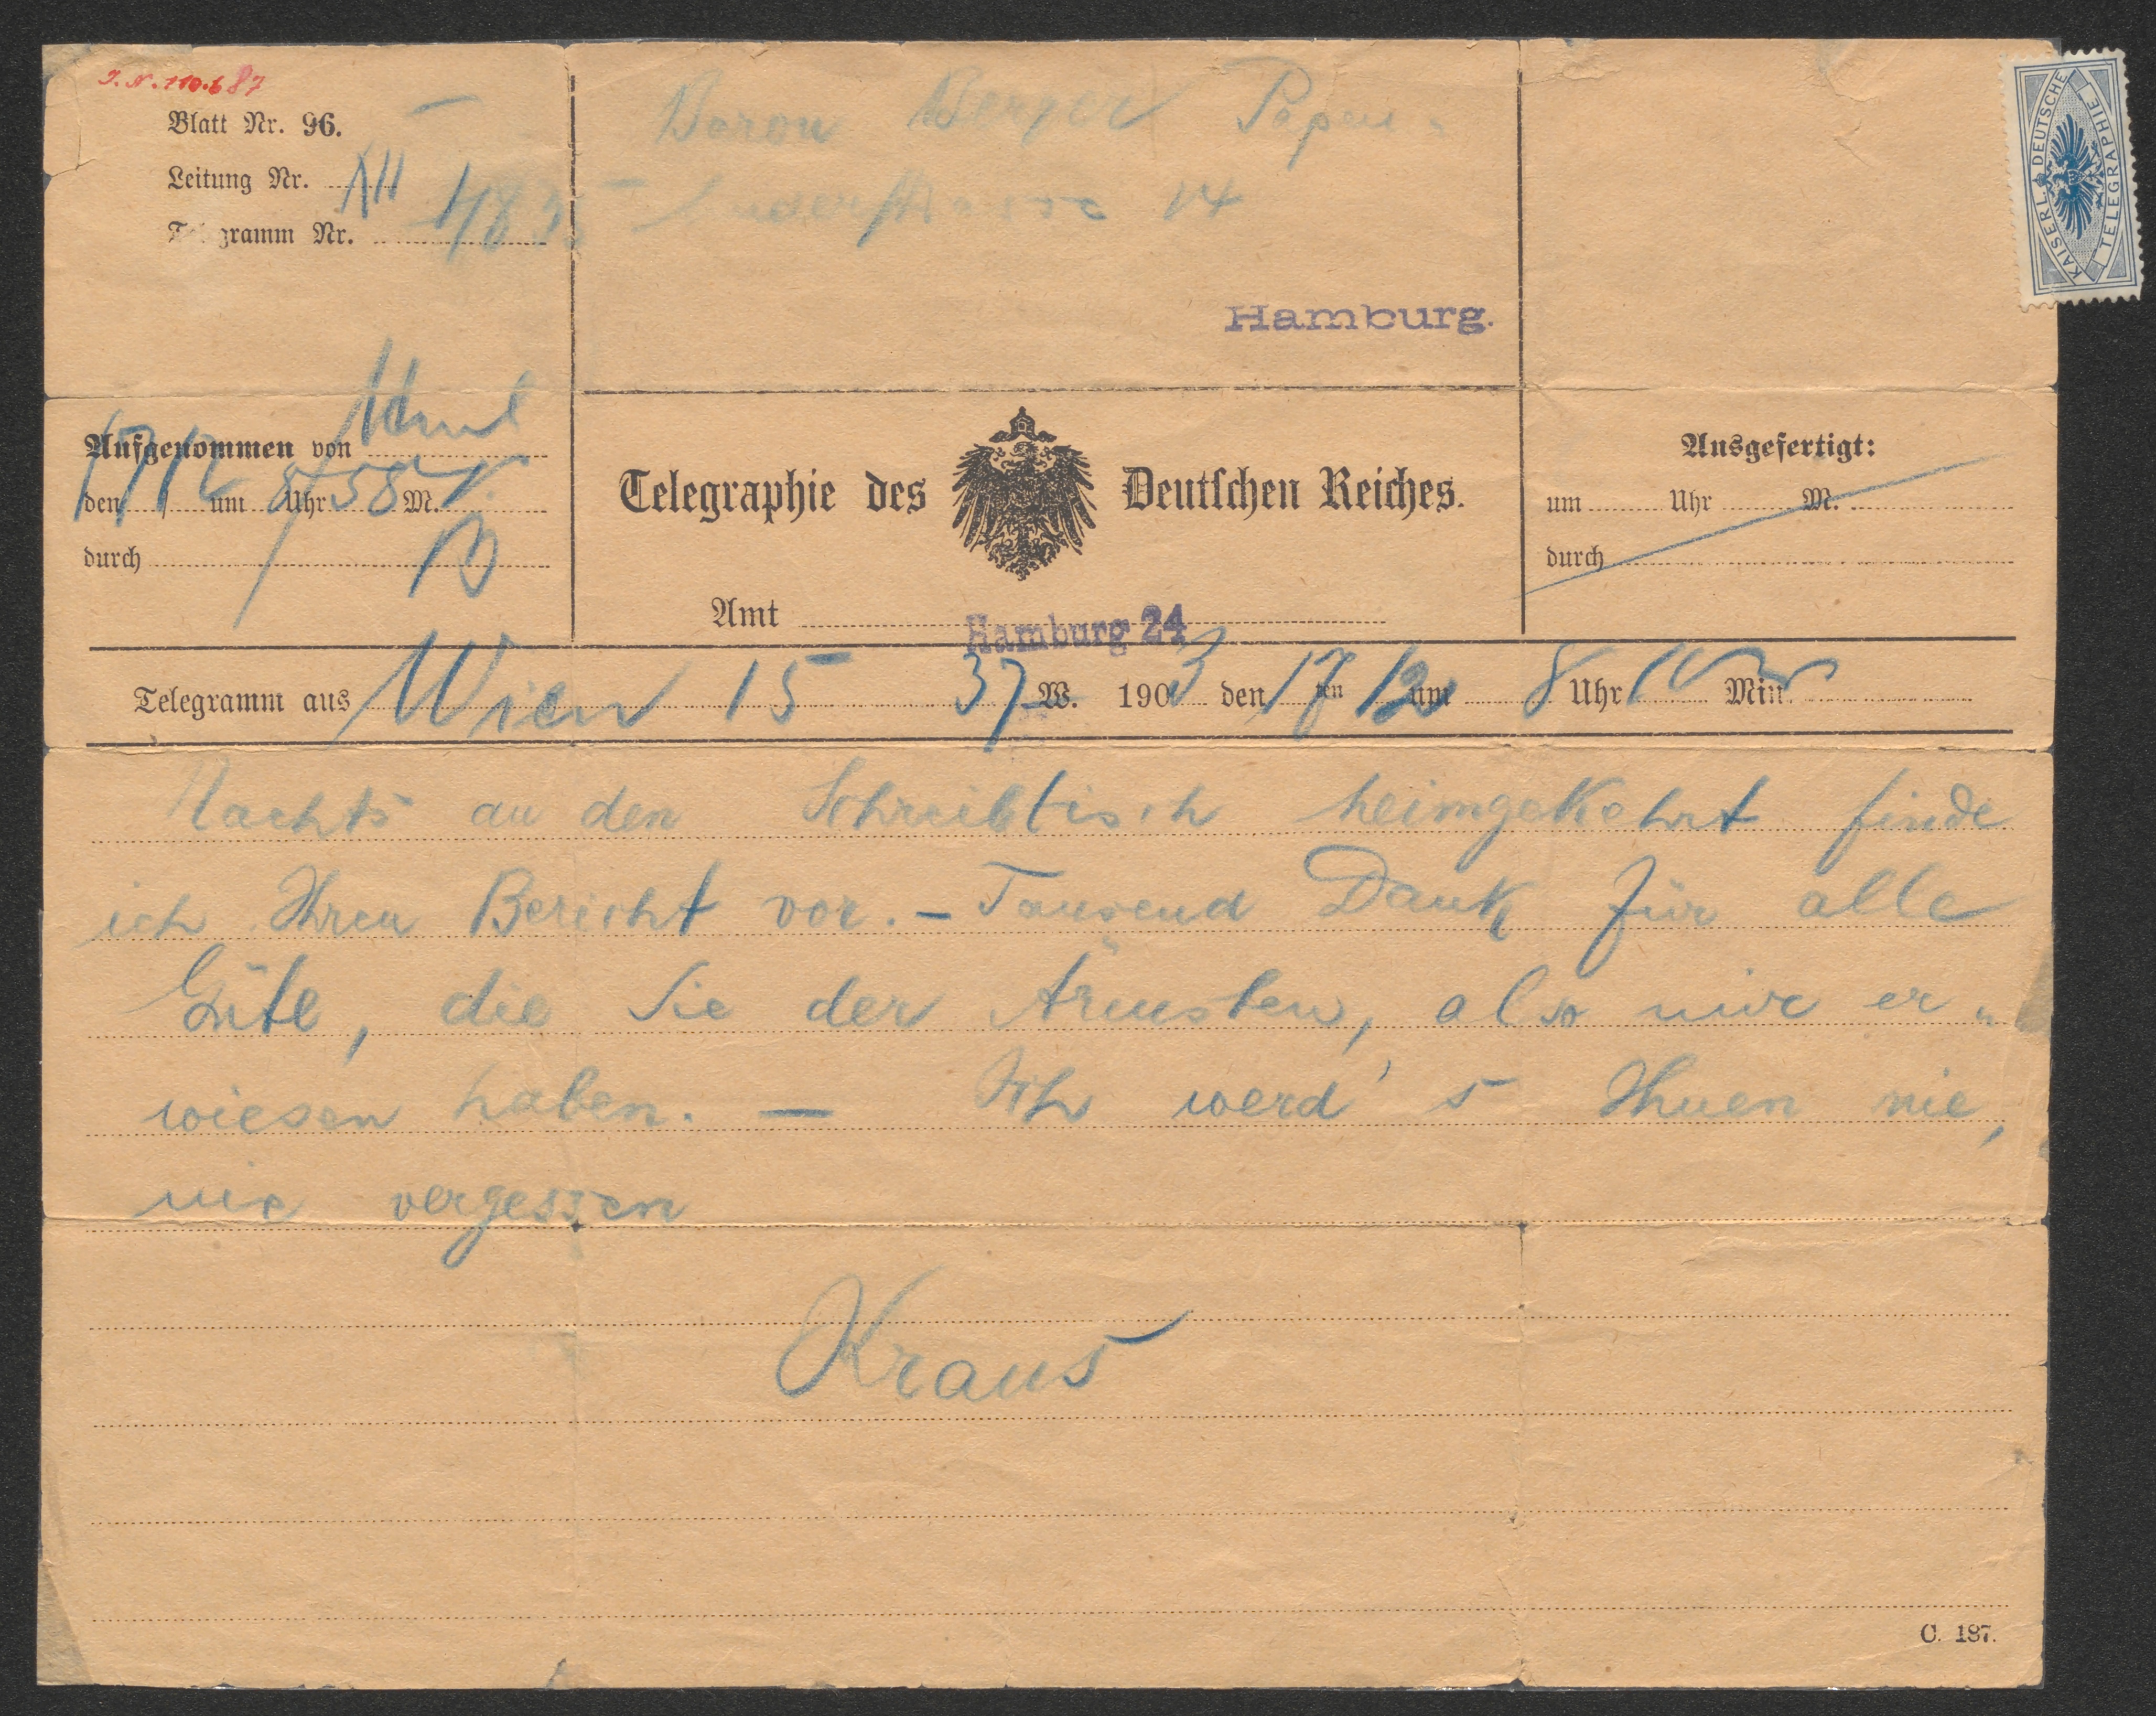 J. N. 110.687
Blatt Nr. 96.
Leitung Nr.
Telegramm Nr. 4835
Baron Berger Papen-
huderstrasse 14
Hamburg.
KAISERL. DEUTSCHE
TELEGRAPHIE
Aufgenommen von
den 17/12 um 8 Uhr 58 M. V.
durch
Telegraphie des Deutschen Reiches.
Amt Hamburg 24
Ausgefertigt:
um Uhr M.
durch
Telegramm aus Wien 15 37 W. 1903 den 17ten 12 um 8 Uhr Min.
Nachts an den Schreibtisch heimgekehrt finde
ich Ihren Bericht vor. – Tausend Dank für alle
Güte, die Sie der Ärmsten, also mir er-
wiesen haben. — Ich werd's Ihnen nie,
nie vergessen
Kraus
C. 187.